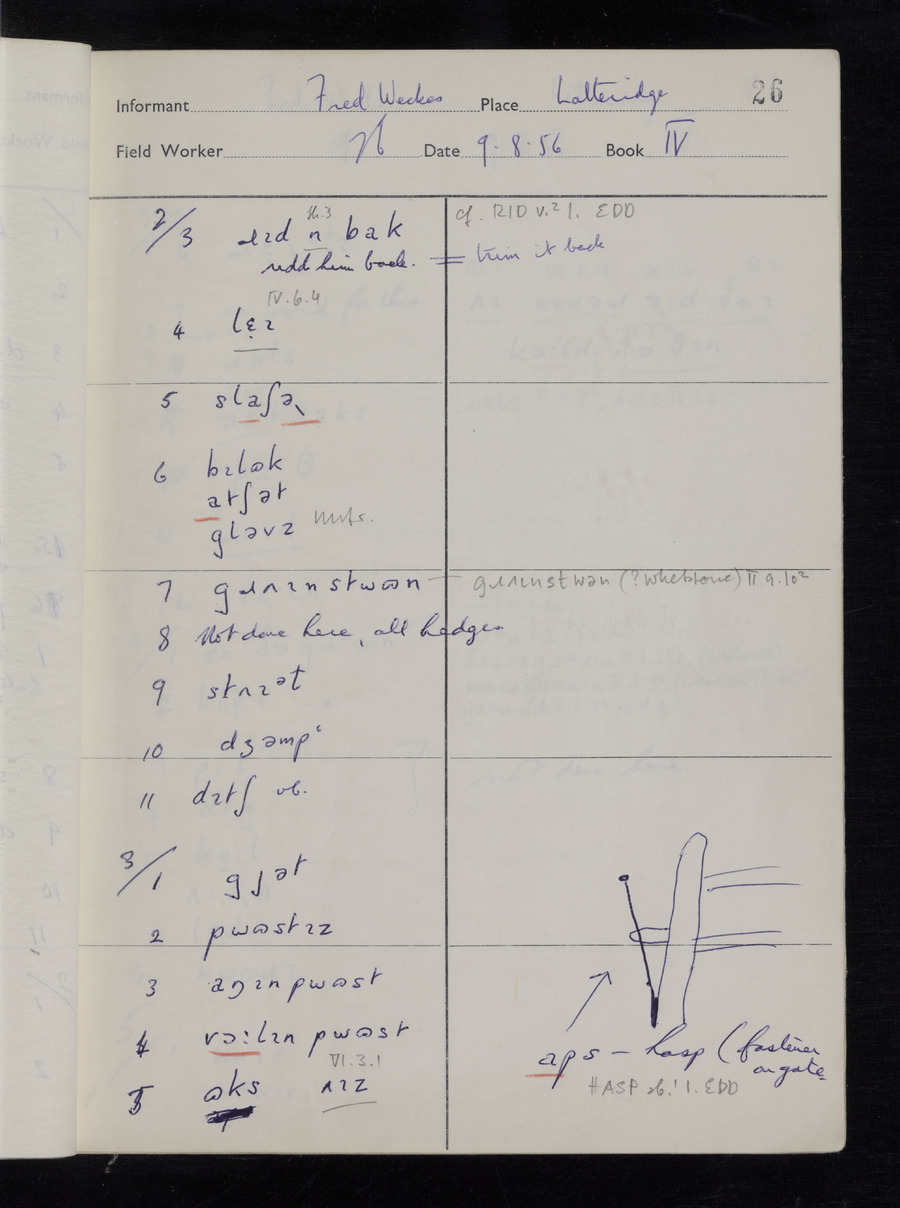 Informant Fred Weekes Place Latteridge 26
Field Worker Date 9.8.56 Book IV
2/3 n bak cf. RID v.² 1. EDD
redd him back. = trim it back
IV.6.4
4 lɛ̣ɪ
5 slaʃə
6 bɪlʊk
atʃət
gləvz mits.
7 gɹʌɪnstwʊn – gɹʌɪnstwən (? whetstone) II 9.10²
8 Not done here, all hedges
9 stɹɪət
10 dʒəmpʿ
11 dɪtʃ vb.
3/1 gjət
2 pwʊstɪz
3 aŋɪnpwʊst
4 vɔ:lɪn pwʊst
VI.3.1
5 ʊks ʌɪz
aps – hasp (fastener
on gate
HASP sb.¹ 1. EDD